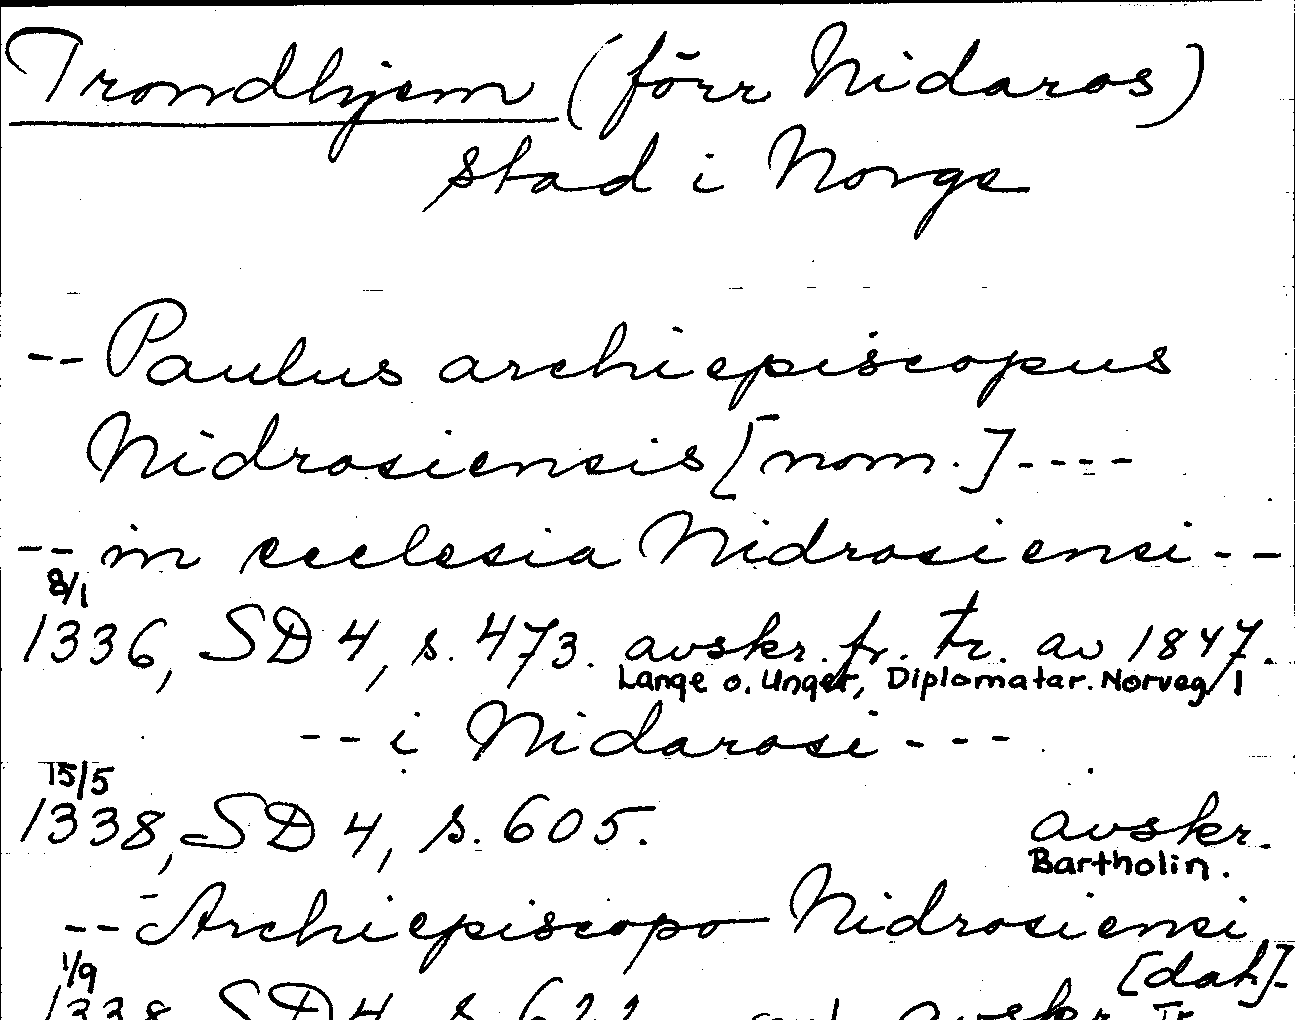 Trondhjem (förr Nidaros)
stad i Norge
-- Paulus archiepiscopus
Nidrosiensis [nom.] ----
-- in ecclesia Nidrosiensi --
8/1
1336, SD 4, s. 473. avskr. fr. tr. av 1847.
Lange o. Unger, Diplomatar. Norveg 1
-- i Nidarosi ---
15/5
1338, SD 4, s. 605. avskr.
Bartholin.
-- Archiepiscopo Nidrosiensi
[dat.]-
1/9
1338 SD 4 s. avskr. Tr